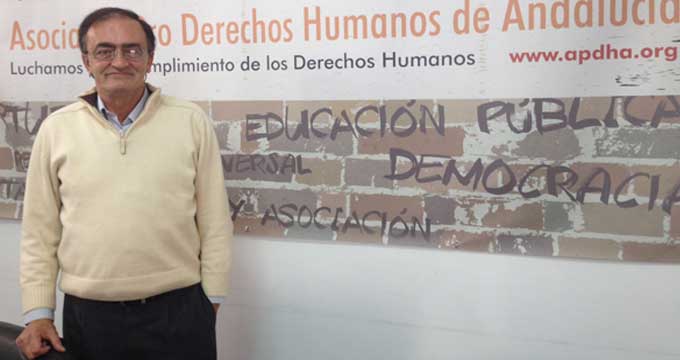 Asocia ro Derechos Humanos de Andalucía
Luchamos mplimiento de los Derechos Humanos www.apdha.org
TU EDUCACIÓN PÚBLICA
DE VERSAL DEMOCRACIA
TA Y ASOCIACIÓN